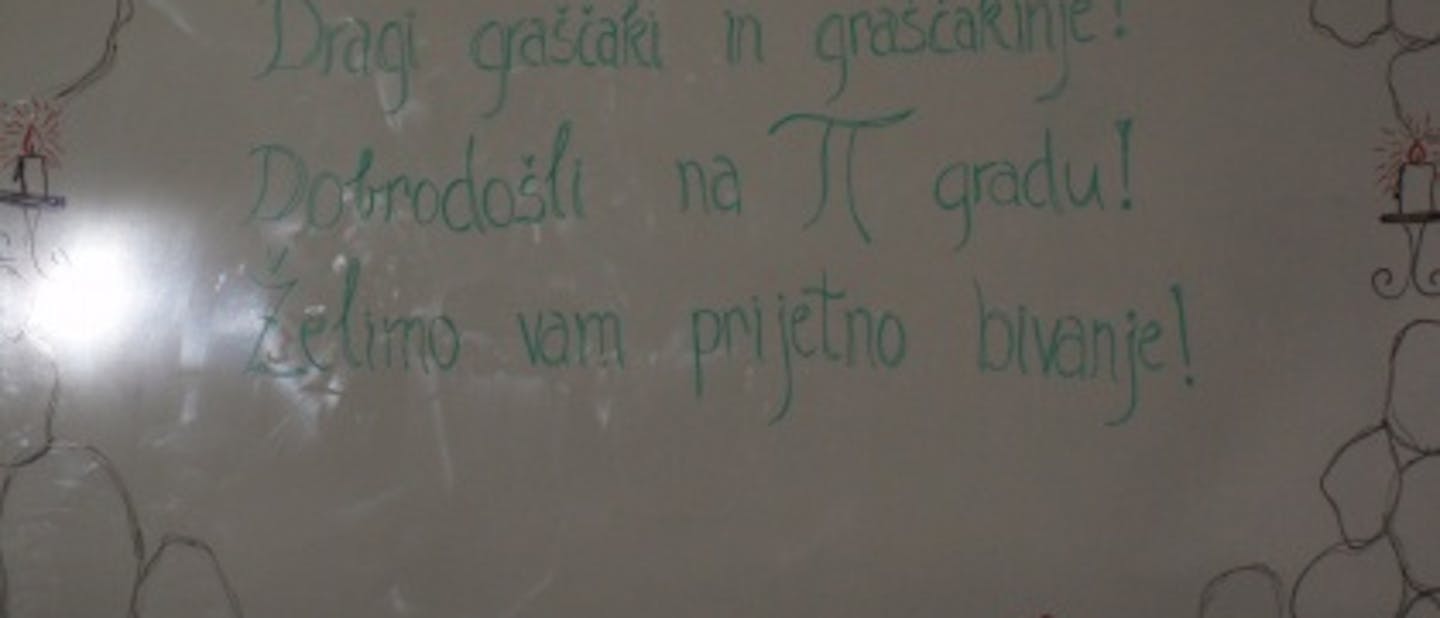 Dragi graščaki in graščakinje!
Dobrodošli na π gradu!
Želimo vam prijetno bivanje!